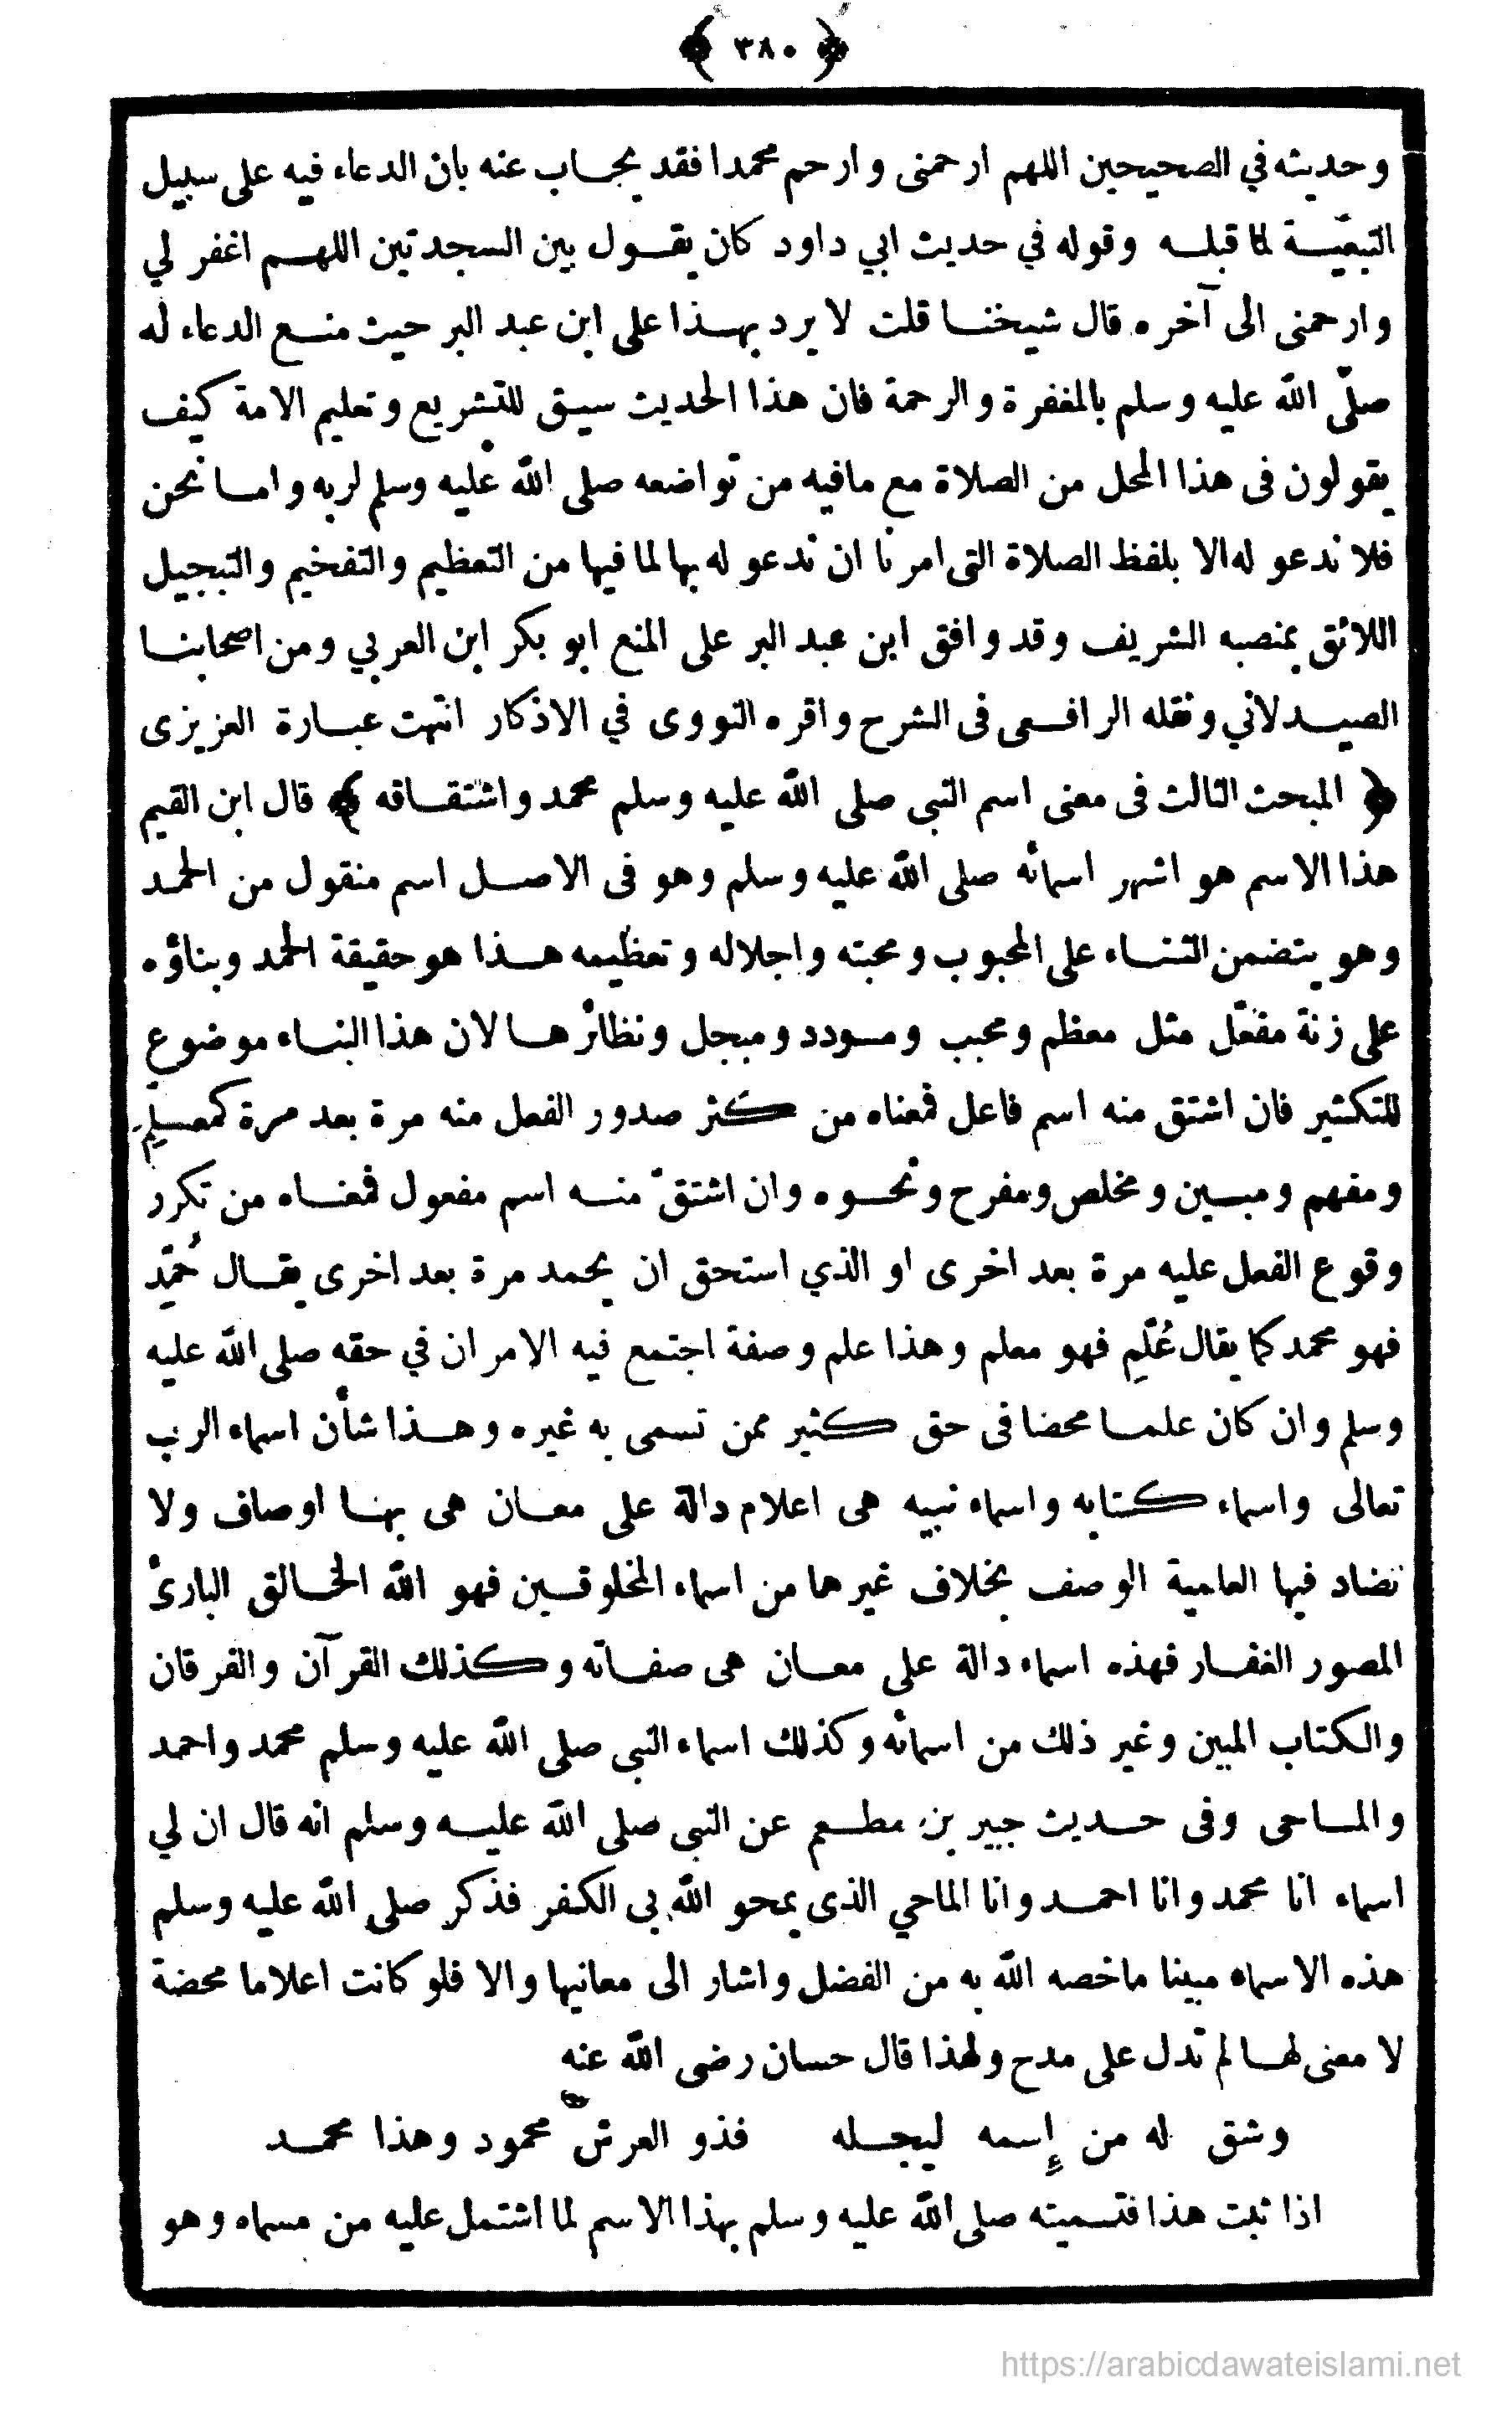 ﴿ ٣٨٠ ﴾
وحديثه في الصحيحين اللهم ارحمنى وارحم محمدا فقد يجاب عنه بان الدعاء فيه على سبيل
التبعّية لما قبله وقوله في حديث ابي داود كان يقول بين السجدتين اللهم اغفر لي
وارحمنى الى آخره قال شيخنا قلت لا يرد بهذا على ابن عبد البر حيث منع الدعاء له
صلّى الله عليه وسلم بالمغفرة والرحمة فان هذا الحديث سيق للتشريع وتعليم الامة كيف
يقولون فى هذا المحل من الصلاة مع مافيه من تواضعه صلى الله عليه وسلم لربه واما نحن
فلا ندعو له الا بلفظ الصلاة التى امرنا ان ندعو له بها لما فيها من التعظيم والتفخيم والتبجيل
اللائق بمنصبه الشريف وقد وافق ابن عبد البر على المنع ابو بكر ابن العربي ومن اصحابنا
الصيدلاني ونقله الرافعى فى الشرح واقره النووى في الاذكار انتهت عبارة العزيزى
﴿ المبحث الثالث فى معنى اسم النبى صلى الله عليه وسلم محمد واشتقاقه ﴾ قال ابن القيم
هذا الاسم هو اشهر اسمائه صلى الله عليه وسلم وهو فى الاصل اسم منقول من الحمد
وهو يتضمن الثناء على المحبوب ومحبته واجلاله وتعظيمه هذا هو حقيقة الحمد وبناؤه
على زنة مفعّل مثل معظم ومحبب ومسودد ومبجل ونظائرها لان هذا البناء موضوع
للتكثير فان اشتق منه اسم فاعل فمعناه من كثر صدور الفعل منه مرة بعد مرة كمعلِم
ومفهم ومبين ومخلص ومفرح ونحوه وان اشتقّ منه اسم مفعول فمعناه من تكرر
وقوع الفعل عليه مرة بعد اخرى او الذي استحق ان يحمد مرة بعد اخرى يقال حُمّد
فهو محمد كما يقال عُلّمِ فهو معلم وهذا علم وصفة اجتمع فيه الامران في حقه صلى الله عليه
وسلم وان كان علما محضا فى حق كثير ممن تسمى به غيره وهذا شأن اسماء الرب
تعالى واسماء كتابه واسماء نبيه هى اعلام دالة على معان هى بها اوصاف ولا
تضاد فيها العلمية الوصف بخلاف غيرها من اسماء المخلوقين فهو الله الخالق البارئ
المصور الغفار فهذه اسماء دالة على معان هى صفاته وكذلك القرآن والفرقان
والكتاب المبين وغير ذلك من اسمائه وكذلك اسماء النبى صلى الله عليه وسلم محمد واحمد
والماحى وفى حديث جبير بن مطعم عن النبى صلى الله عليه وسلم انه قال ان لي
اسماء انا محمد وانا احمد وانا الماحي الذى يمحو الله بى الكفر فذكر صلى الله عليه وسلم
هذه الاسماء مبينا ماخصه الله به من الفضل واشار الى معانيها والا فلو كانت اعلاما محضة
لا معنى لها لم تدل على مدح ولهذا قال حسان رضى الله عنه
وشق له من إسمه ليجله فذو العرش محمود وهذا محمد
اذا ثبت هذا فتسميته صلى الله عليه وسلم بهذا الاسم لما اشتمل عليه من مسماه وهو
https://arabicdawateislami.net